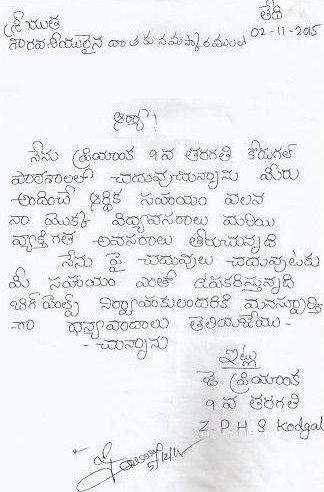 తేది
శ్రీయుత 02-11-2015
గౌరవనీయులైన దాతకు నమస్కారములు
ఆర్యా!
నేను ప్రియాంక 9వ తరగతి కోడుగల్
పాఠశాలలో చదువుచున్నాను మీరు
అందించే ఆర్థిక సహాయం వలన
నా యొక్క విద్యావసరాలు మరియు
వ్యక్తిగత అవసరాలు తీరుచున్నవి
నేను పై చదువులు చదువుటకు
మీ సహాయం ఎంతో ఉపకరిస్తున్నది
బిగ్ హెల్ప్ నిర్వాహకులందరికి మనస్ఫూర్తి
-గా ధన్యవాదాలు తెలియజేయు-
-చున్నాను
ఇట్లు
జె. ప్రియాంక
9 వ తరగతి
Z.P.H.S Kodgal